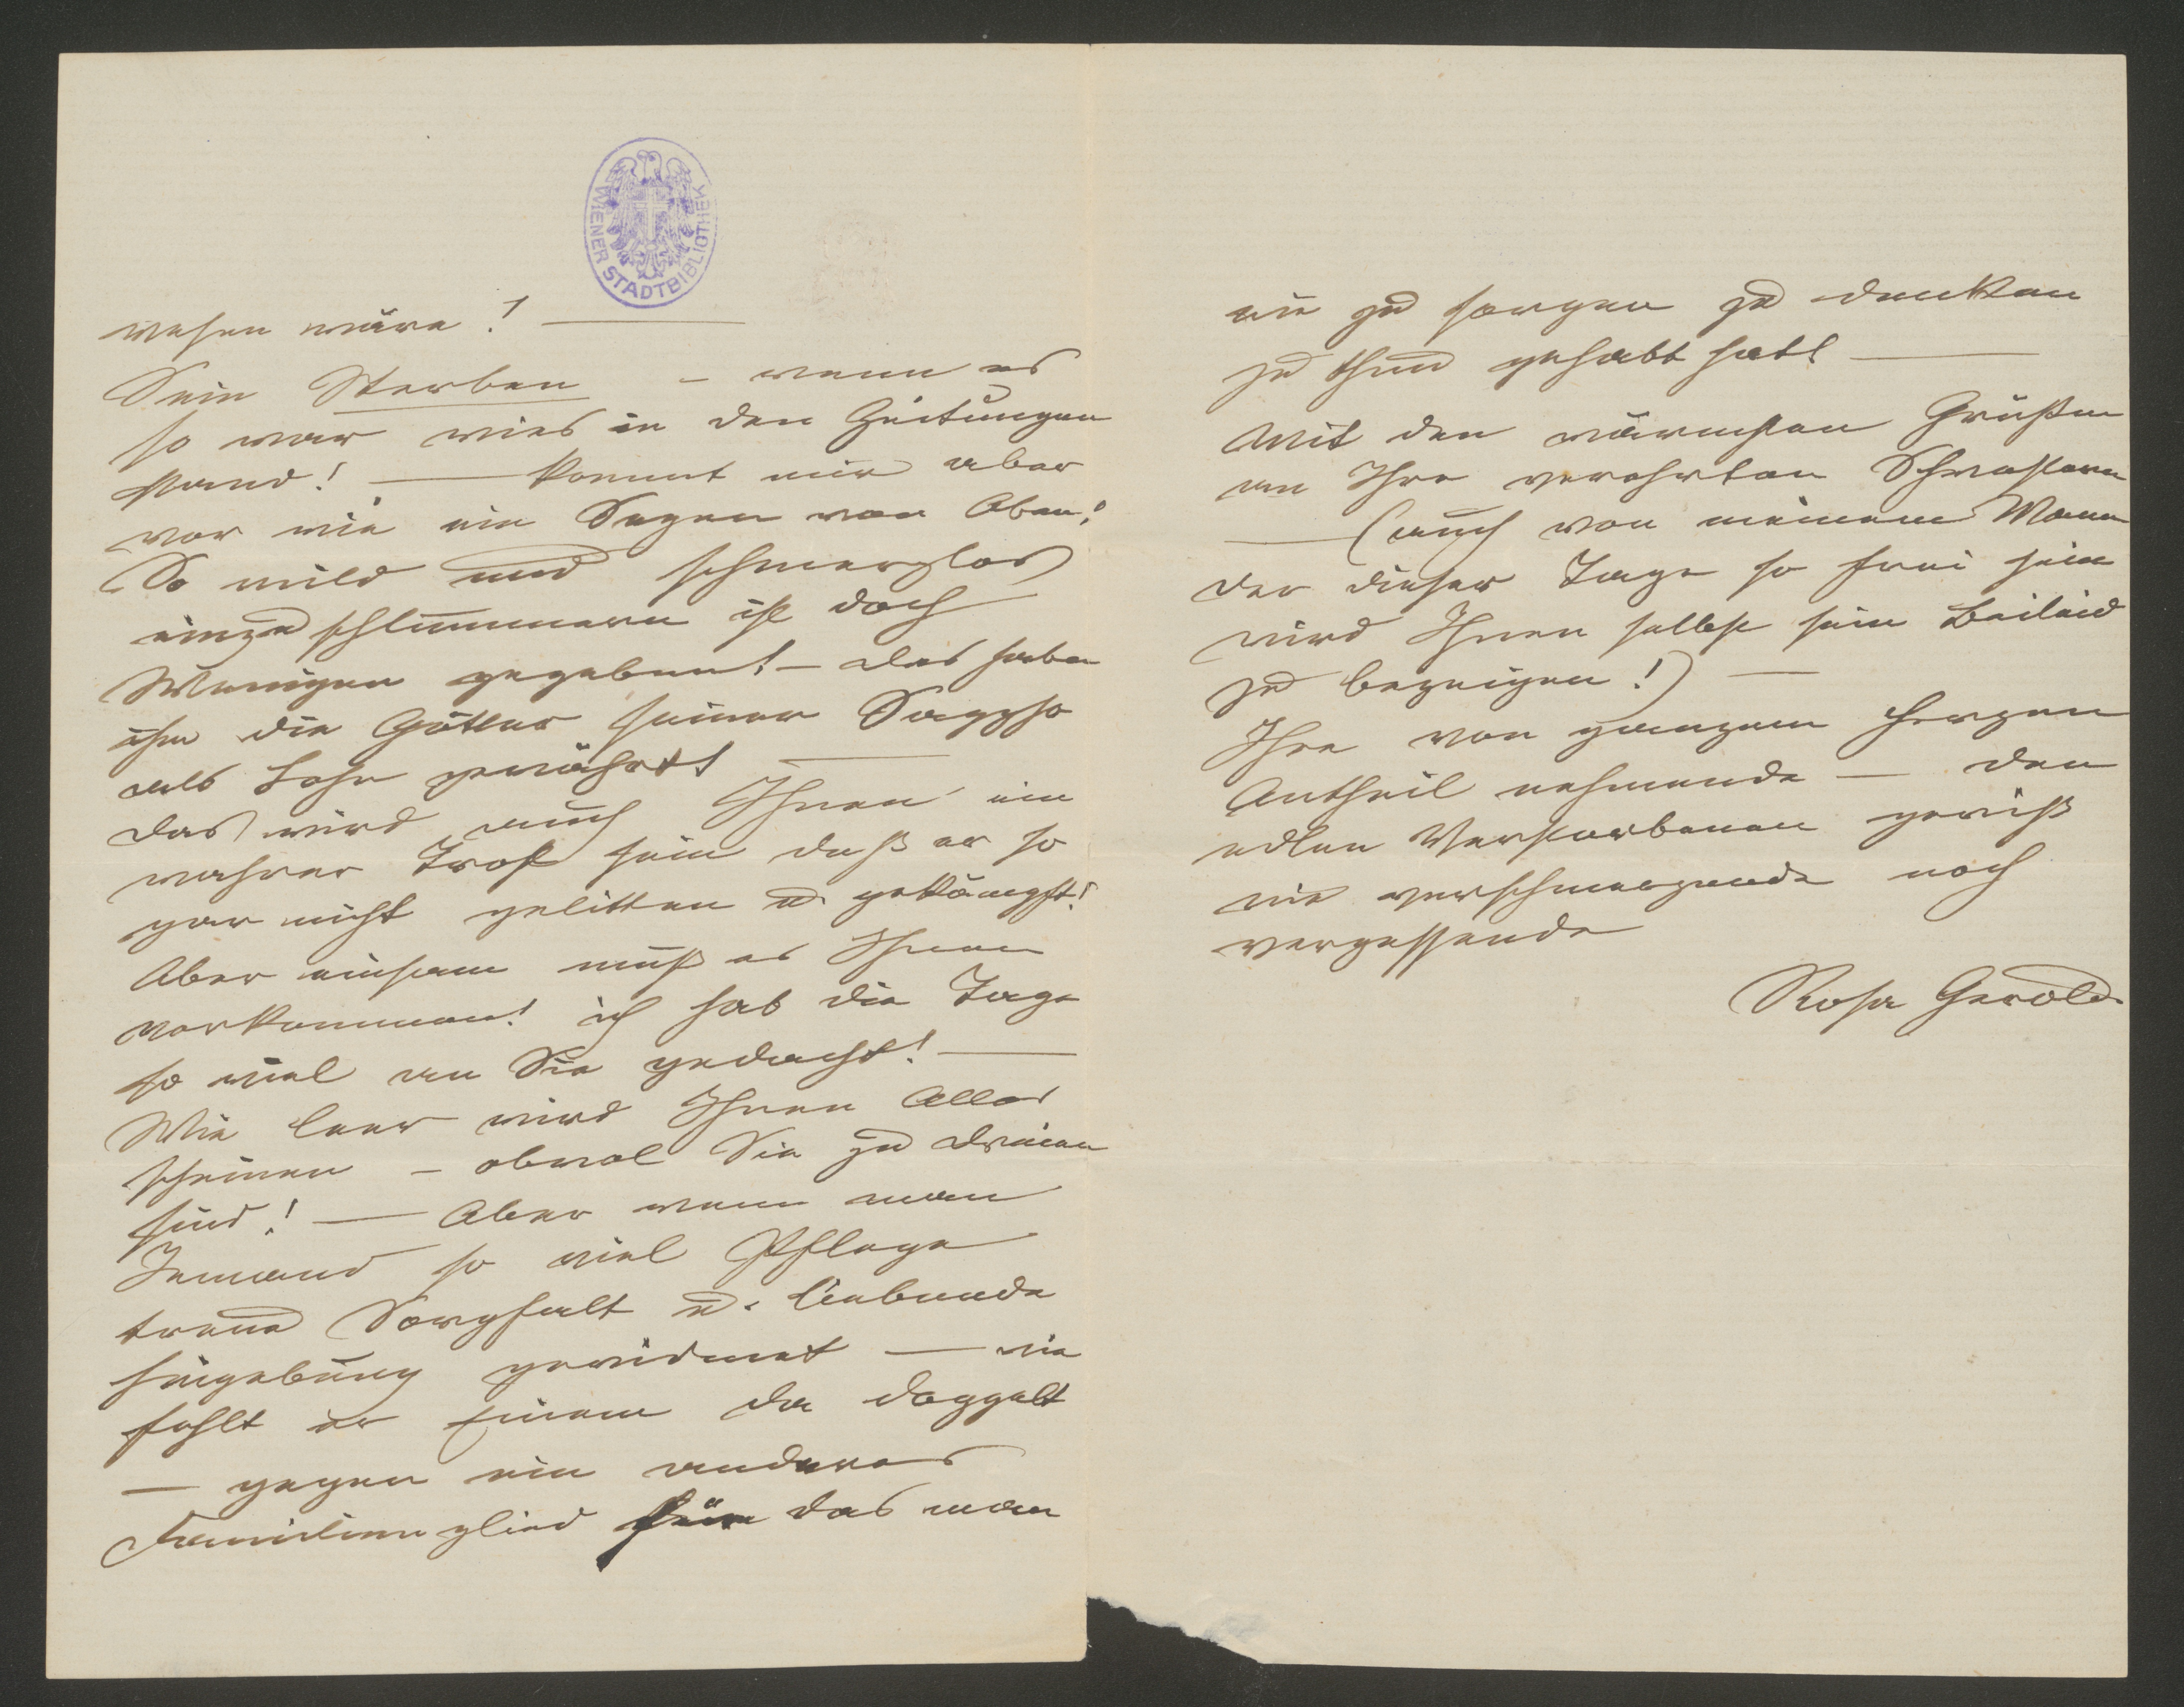 WIENER STADTBIBLIOTHEK
wesen wäre! —
Sein Sterben – wenn es
so war wies in den Zeitungen
stand! — kommt mir aber
vor wie ein Segen von Oben!
So mild und schmerzlos
einzuschlummern ist doch
Wenigen gegeben! – das haben
ihm die Götter seiner Sappho
als Lohn gewährt —
das wird auch Ihnen ein
wahrer Trost sein daß er so
gar nicht gelitten u. gekämpft!
Aber einsam muß es Ihnen
vorkommen! ich hab die Tage
so viel an Sie gedacht! —
Wie leer wird Ihnen Alles
scheinen – obwol Sie zu dreien
sind! — Aber wenn man
Jemand so viel Pflege
treue Sorgfalt u. liebende
Hingebung gewidmet — wie
fehlt er Einem da doppelt
— gegen ein anderes
Familienglied für das man
nie zu sorgen zu denken
zu thun gehabt hat! —
Mit den wärmsten Grüßen
an Ihre verehrten Schwestern
— (auch von meinem Mann
der dieser Tage so frei sein
wird Ihnen selbst sein Beileid
zu bezeigen!) —
Ihre von ganzem Herzen
Antheil nehmende — den
edlen Verstorbenen gewiß
nie verschmerzende noch
vergessende
Rosa Gerold.